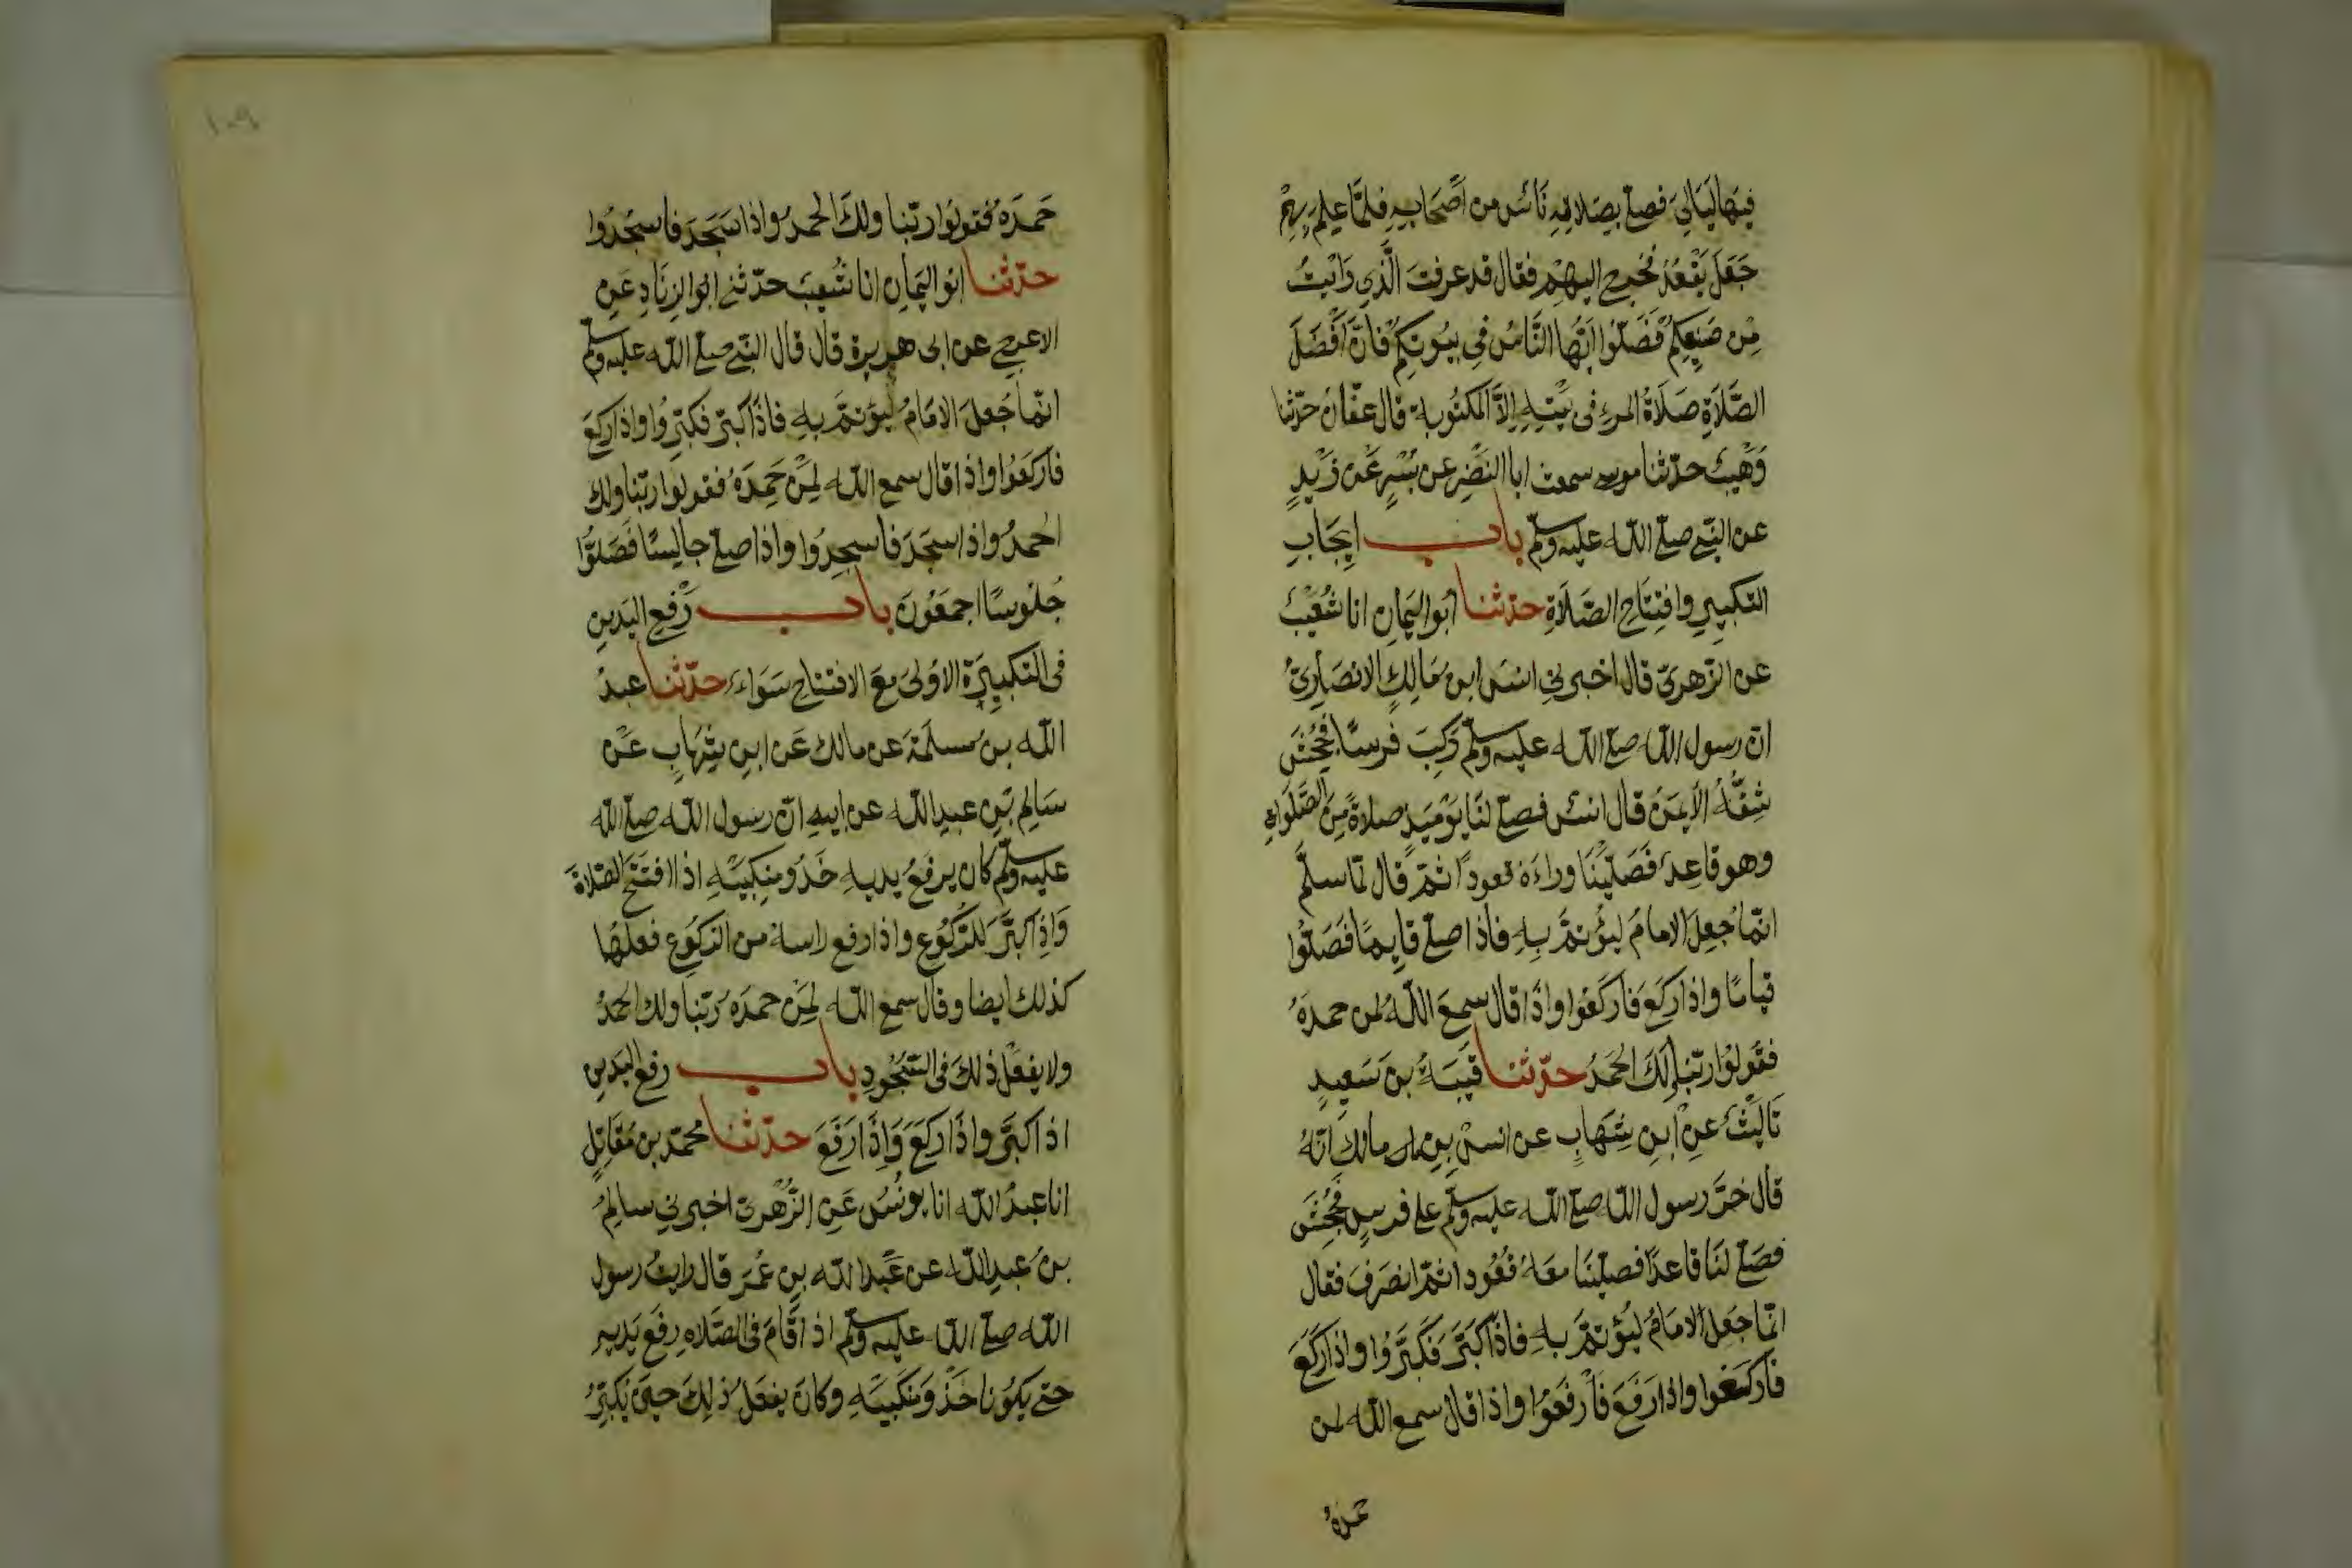 فيها ليالي فصلى بصلاته ناس من أصحابه فلما علم بهم
جعل يقعد فخرج اليهم فقال قد عرفت الذي رايت
من صنيعكم فصلوا ايها الناس في بيوتكم فان أفضل
الصلاة صلاة المرء في بيته الا المكتوبة قال عفان حدثنا
وهيب حدثنا موسى سمعت ابا النضر عن بسر عن زيد
عن النبي صلى الله عليه وسلم باب ايجاب
التكبير وافتتاح الصلاة حدثنا ابو اليمان انا شعيب
عن الزهري قال اخبرني انس ابن مالك الانصاري
ان رسول الله صلى الله عليه وسلم ركب فرسا فجحش
شقه الايمن قال انس فصلى لنا يومئذ صلاة من الصلوات
وهو قاعد فصلينا وراءه قعودا ثم قال لما سلم
انما جعل الامام ليؤتم به فاذا صلى قايما فصلوا
قياما واذا ركع فاركعوا واذا قال سمع الله لمن حمده
فقولوا ربنا لك الحمد حدثنا قتيبة بن سعيد
نا ليث عن ابن شهاب عن انس بن مالك انه
قال خر رسول الله صلى الله عليه وسلم على فرس فجحش
فصلى لنا قاعدا فصلينا معه قعودا ثم انصرف فقال
انما جعل الامام ليؤتم به فاذا كبر فكبروا واذا ركع
فاركعوا واذا رفع فارفعوا واذا قال سمع الله لمن
حمده
١٠٩
حمده فقولوا ربنا ولك الحمد واذا سجد فاسجدوا
حدثنا ابو اليمان انا شعيب حدثني ابو الزناد عن
الاعرج عن ابى هريرة قال قال النبي صلى الله عليه وسلم
انما جعل الامام ليؤتم به فاذا كبر فكبروا واذا ركع
فاركعوا واذا قال سمع الله لمن حمده فقولوا ربنا ولك
الحمد واذا سجد فاسجدوا واذا صلى جالسا فصلوا
جلوسا اجمعون باب رفع اليدين
في التكبيرة الاولى مع الافتتاح سواء حدثنا عبد
الله بن مسلمة عن مالك عن ابن شهاب عن
سالم بن عبد الله عن ابيه ان رسول الله صلى الله
عليه وسلم كان يرفع يديه حذو منكبيه اذا افتتح الصلاة
واذا كبر للركوع واذا رفع راسه من الركوع فعلها
كذلك ايضا وقال سمع الله لمن حمده ربنا ولك الحمد
ولا يفعل ذلك في السجود باب رفع اليدين
اذا كبر واذا ركع واذا رفع حدثنا محمد بن مقاتل
انا عبد الله انا يونس عن الزهري اخبرني سالم
بن عبد الله عن عبد الله بن عمر قال رايت رسول
الله صلى الله عليه وسلم اذا قام في الصلاه رفع يديه
حتى يكونا حذو منكبيه وكان يفعل ذلك حين يكبر